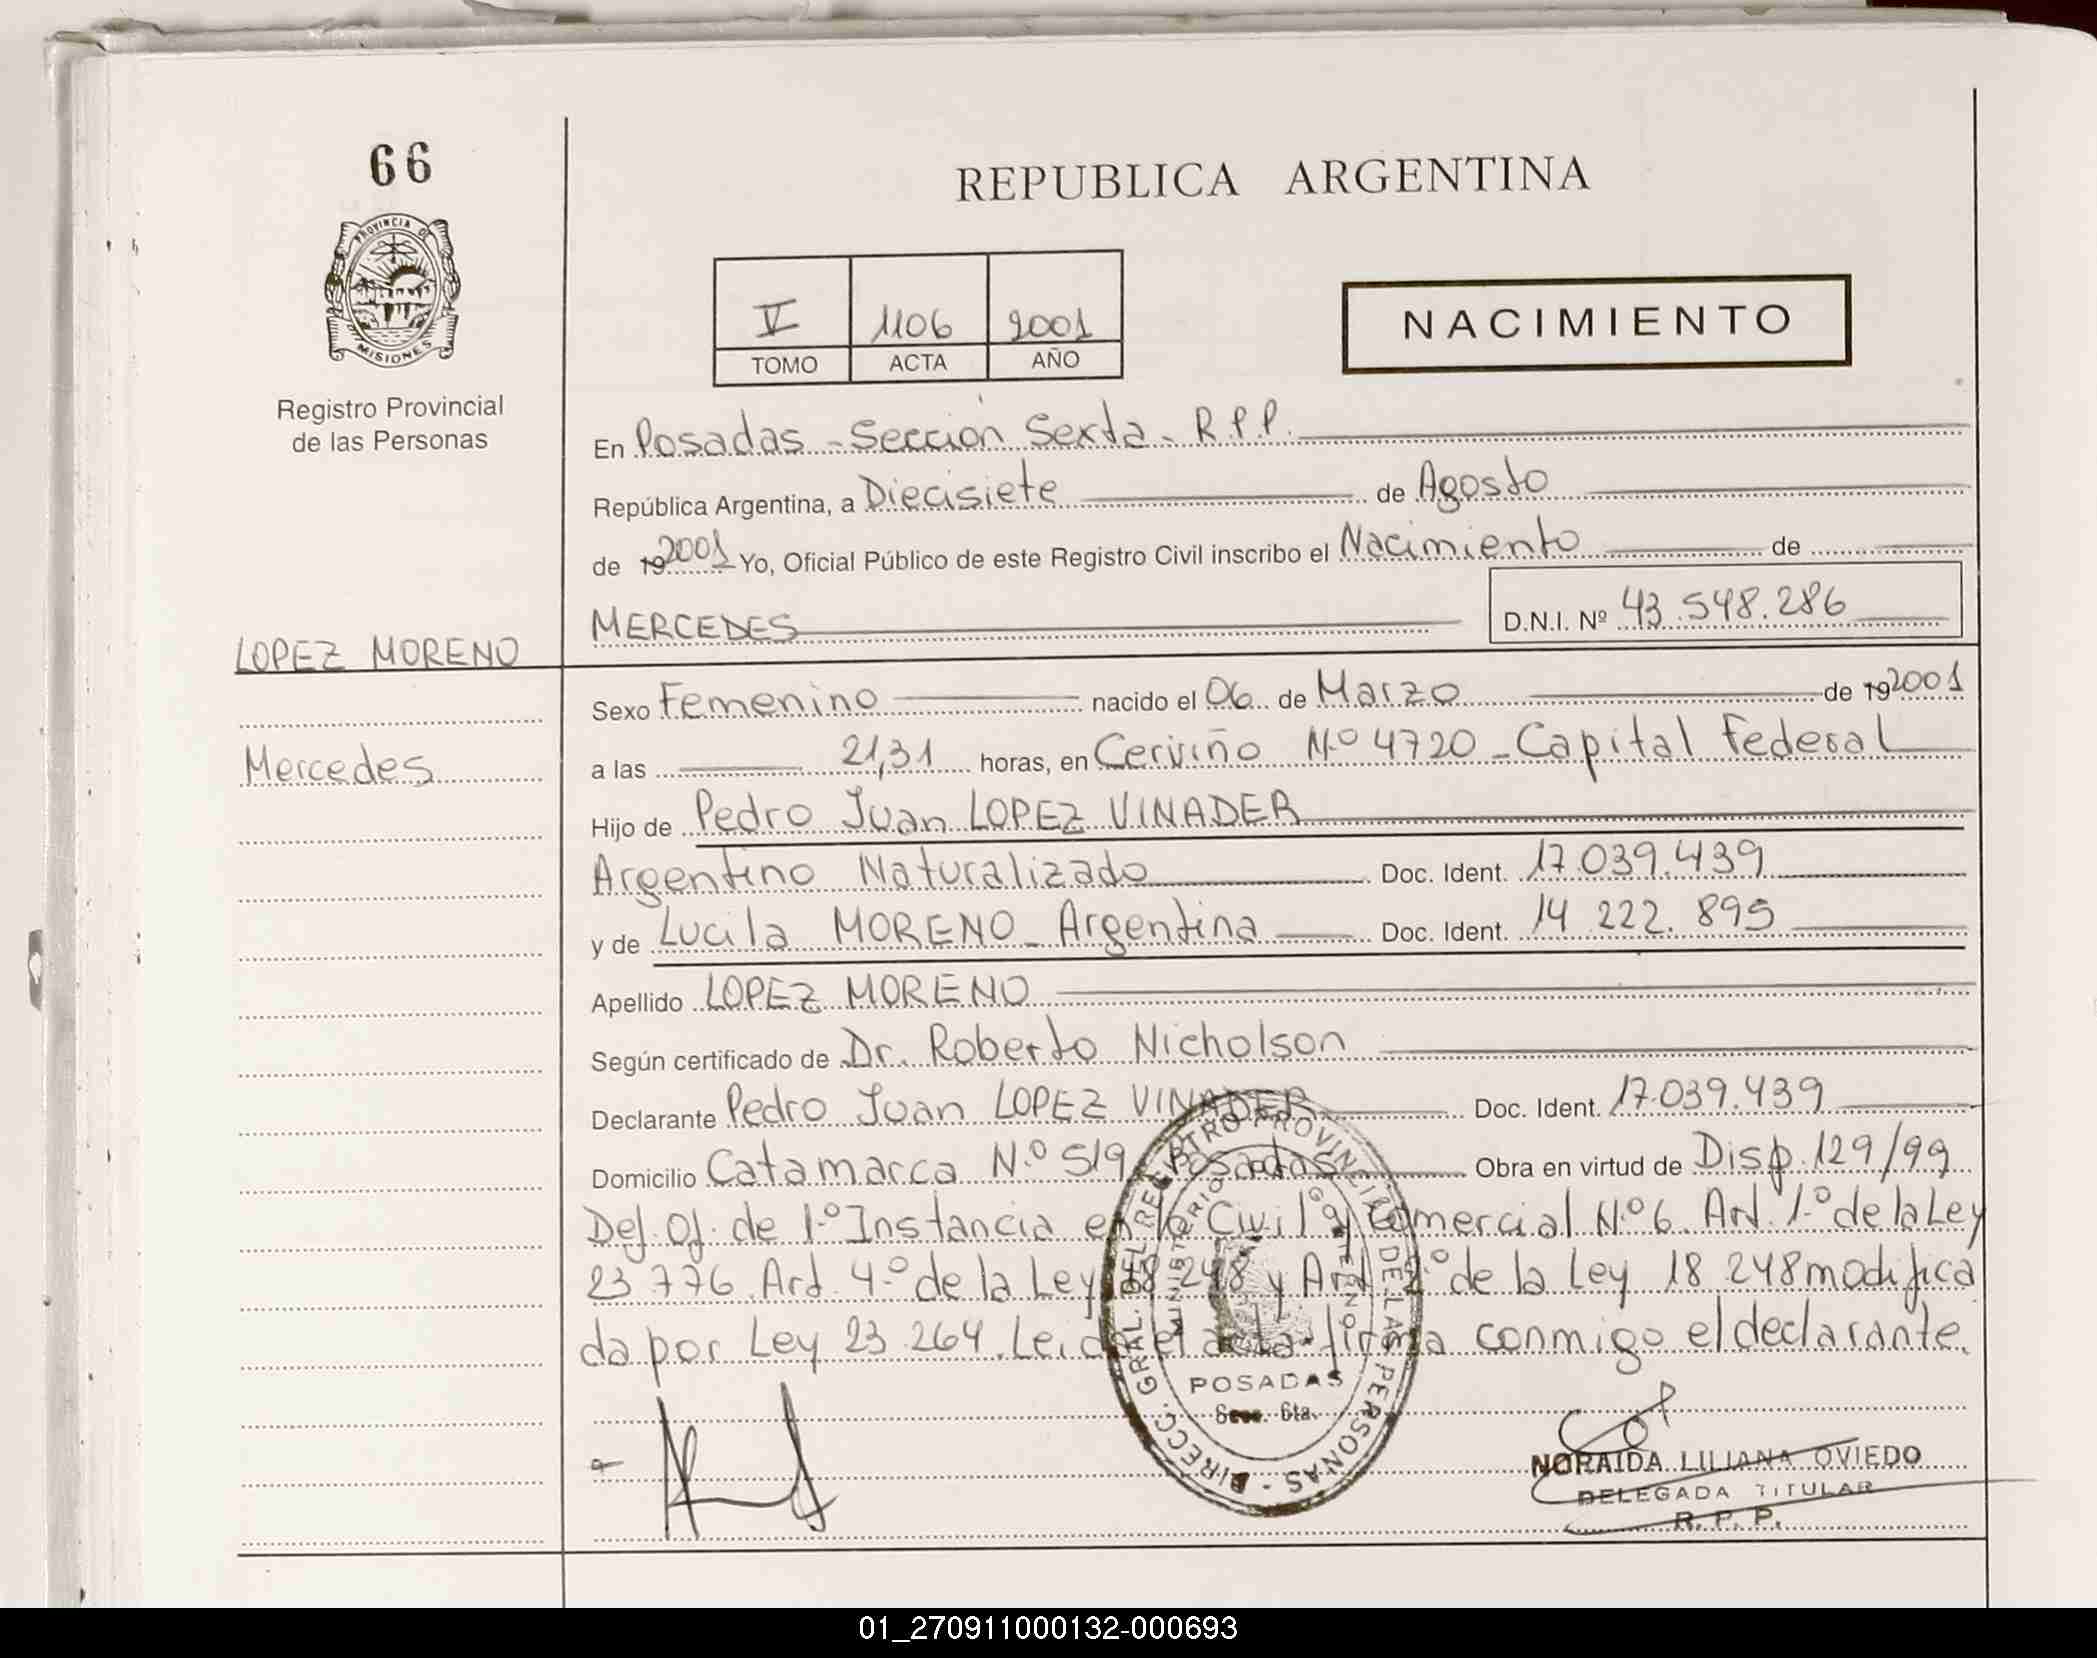 66
REPUBLICA ARGENTINA
PROVINCIA DE
MISIONES
Registro Provincial
de las Personas
V 1106 2001
TOMO ACTA AÑO
NACIMIENTO
En Posadas - Sección Sexta - R.P.P.
República Argentina, a Diecisiete de Agosto
de 19 2001 Yo, Oficial Público de este Registro Civil inscribo el Nacimiento de
MERCEDES D.N.I. Nº 43.548.286
LOPEZ MORENO
Mercedes
Sexo Femenino nacido el 06 de Marzo de 19 2001
a las 21,31 horas, en Cerviño N.º 4720 - Capital Federal
Hijo de Pedro Juan LOPEZ VINADER
Argentino Naturalizado Doc. Ident. 17.039.439
y de Lucila MORENO - Argentina Doc. Ident. 14.222.895
Apellido LOPEZ MORENO
Según certificado de Dr. Roberto Nicholson
Declarante Pedro Juan LOPEZ VINADER Doc. Ident. 17.039.439
Domicilio Catamarca N.º 519 Posadas Obra en virtud de Disp. 129/99
Def. Of. de 1.º Instancia en lo Civil y Comercial N.º 6. Art. 1.º de la Ley
23.776. Art. 4.º de la Ley 18.248 y Art. 2.º de la Ley 18.248 modifica
da por Ley 23.264. Leida el acta firma conmigo el declarante.
DIRECC. GRAL. DEL REGISTRO PROVINCIAL DE LAS PERSONAS
MINISTERIO GOBIERNO
POSADAS
Secc. 6ta.
NORAIDA LILIANA OVIEDO
DELEGADA TITULAR
R. P. P.
01_270911000132-000693